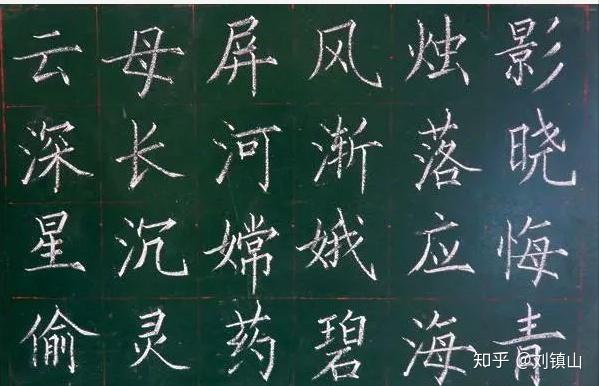 云母屏风烛影
深长河渐落晓
星沉嫦娥应悔
偷灵药碧海青
知乎 @刘镇山